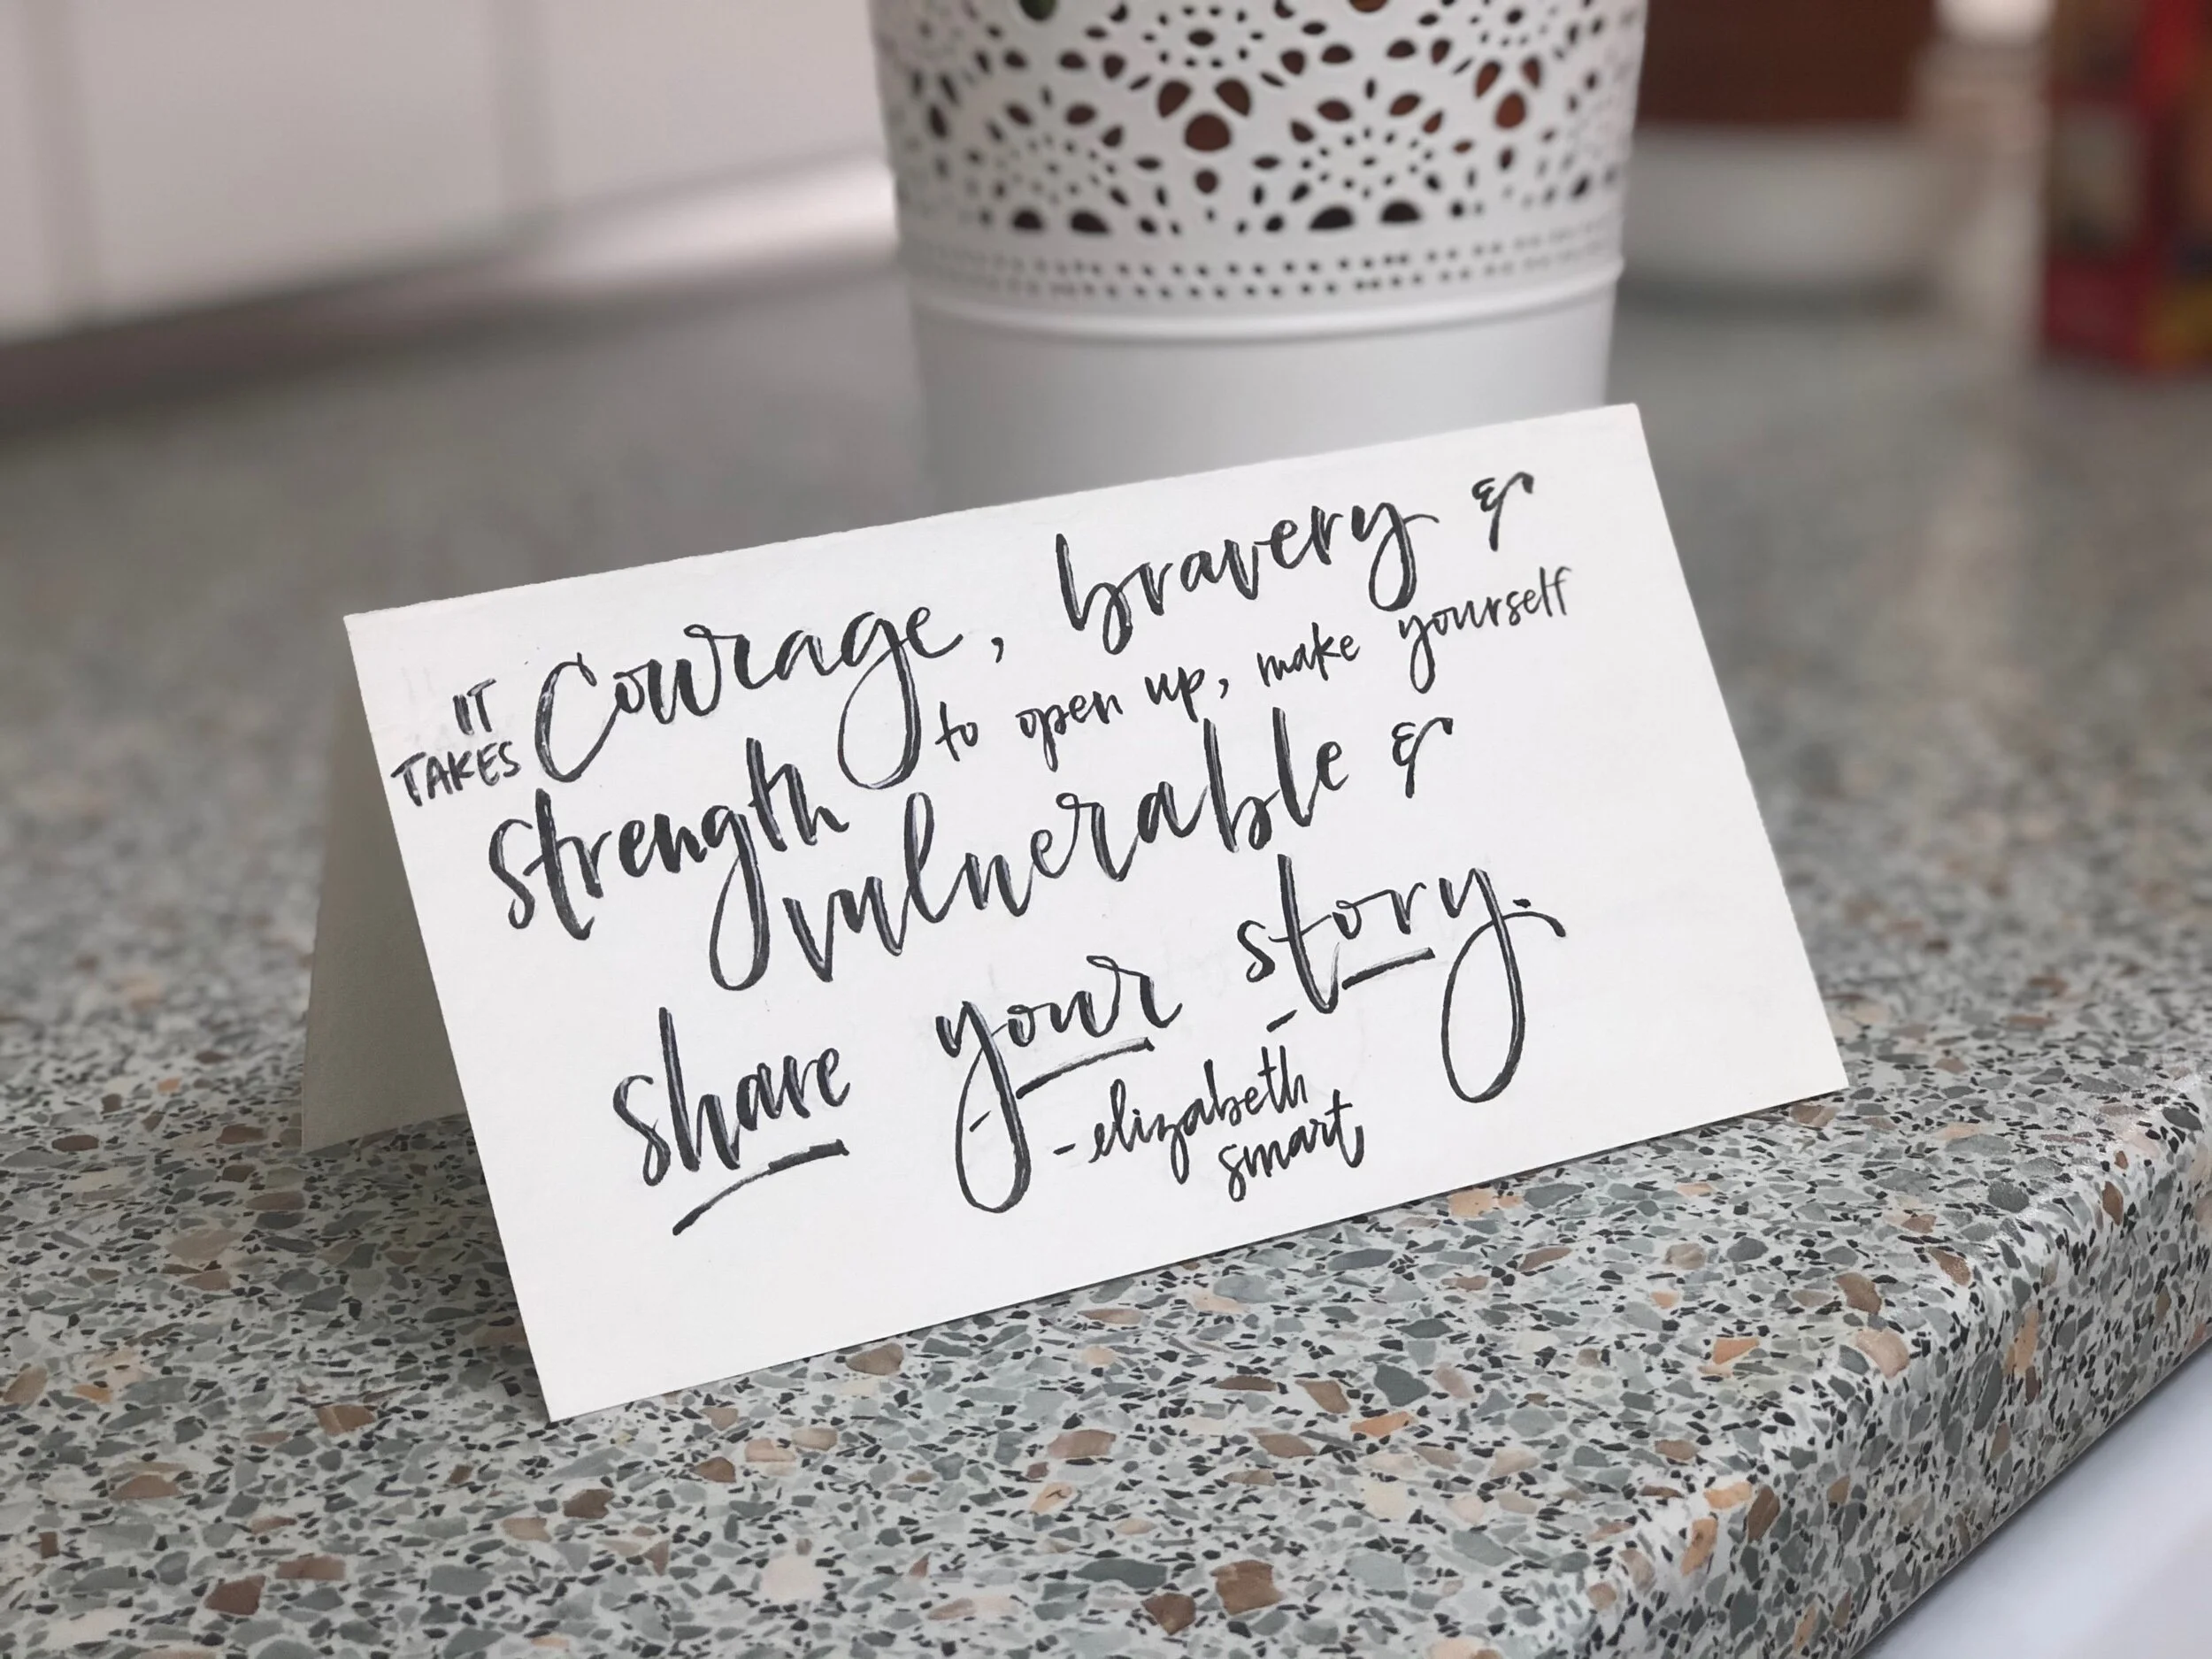 IT TAKES Courage, bravery &
strength to open up, make yourself
vulnerable &
share your story.
- elizabeth
smart